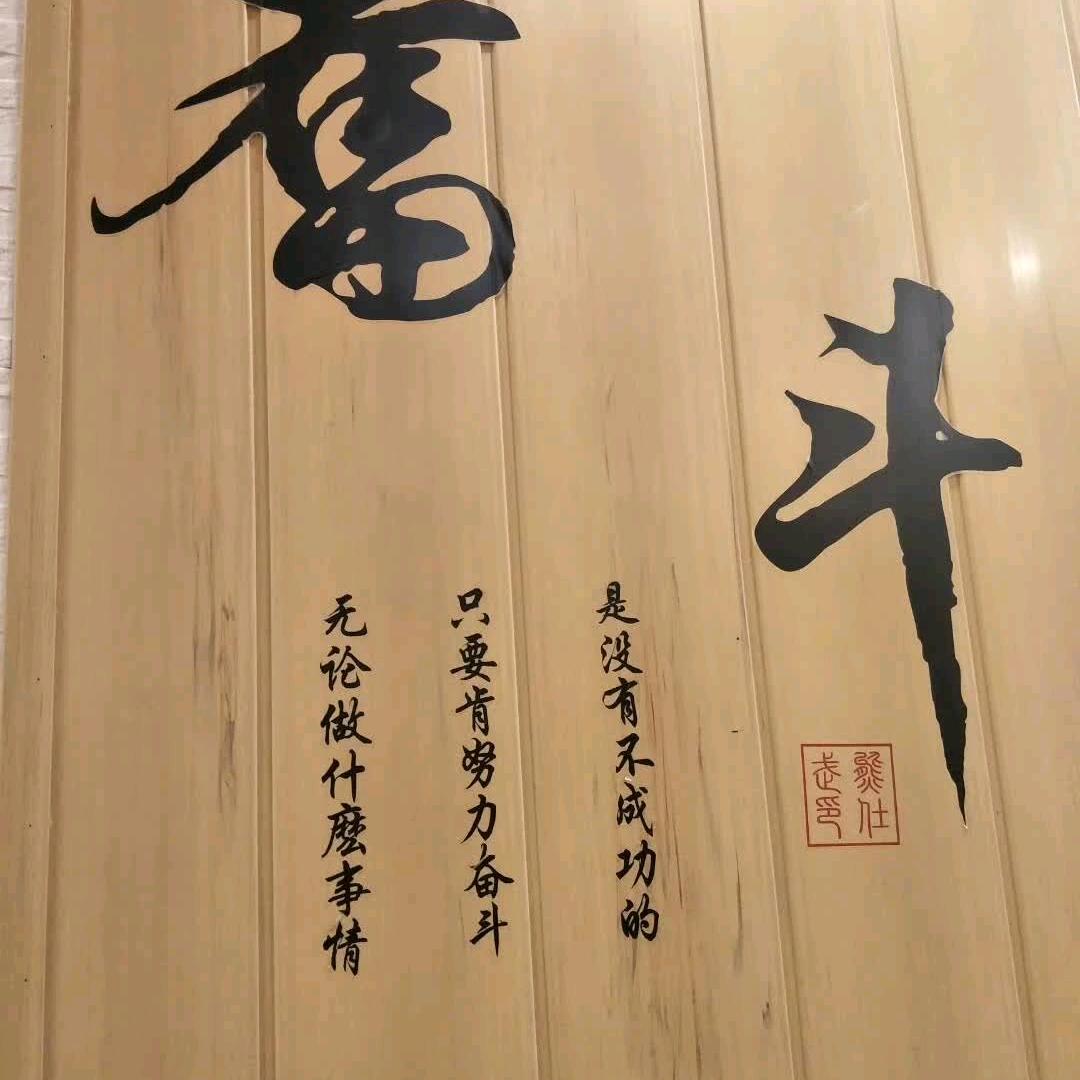 奮斗
无论做什麼事情
只要肯努力奋斗
是没有不成功的
熊仕
武印